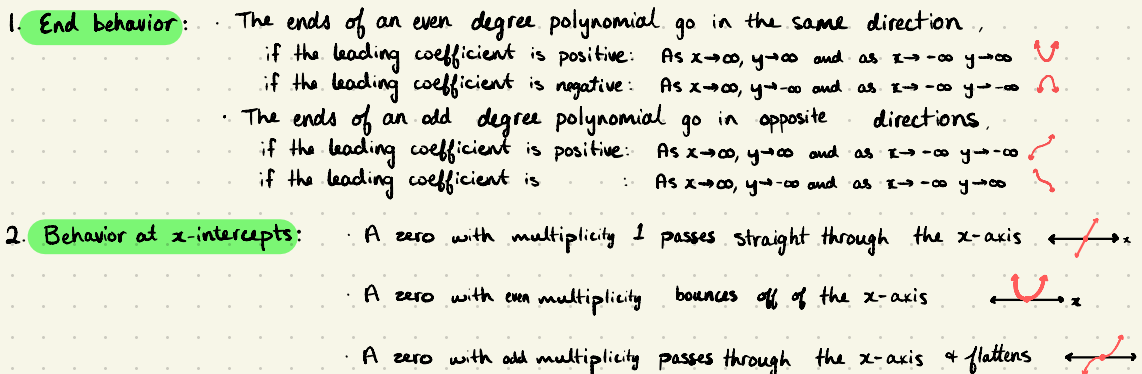 1. End behavior: · The ends of an even degree polynomial go in the same direction,
if the leading coefficient is positive: As x→∞, y→∞ and as x→-∞ y→∞
if the leading coefficient is negative: As x→∞, y→-∞ and as x→-∞ y→-∞
· The ends of an odd degree polynomial go in opposite directions,
if the leading coefficient is positive: As x→∞, y→∞ and as x→-∞ y→-∞
if the leading coefficient is : As x→∞, y→-∞ and as x→-∞ y→∞
2. Behavior at x-intercepts: · A zero with multiplicity 1 passes straight through the x-axis x
· A zero with even multiplicity bounces off of the x-axis x
· A zero with odd multiplicity passes through the x-axis & flattens